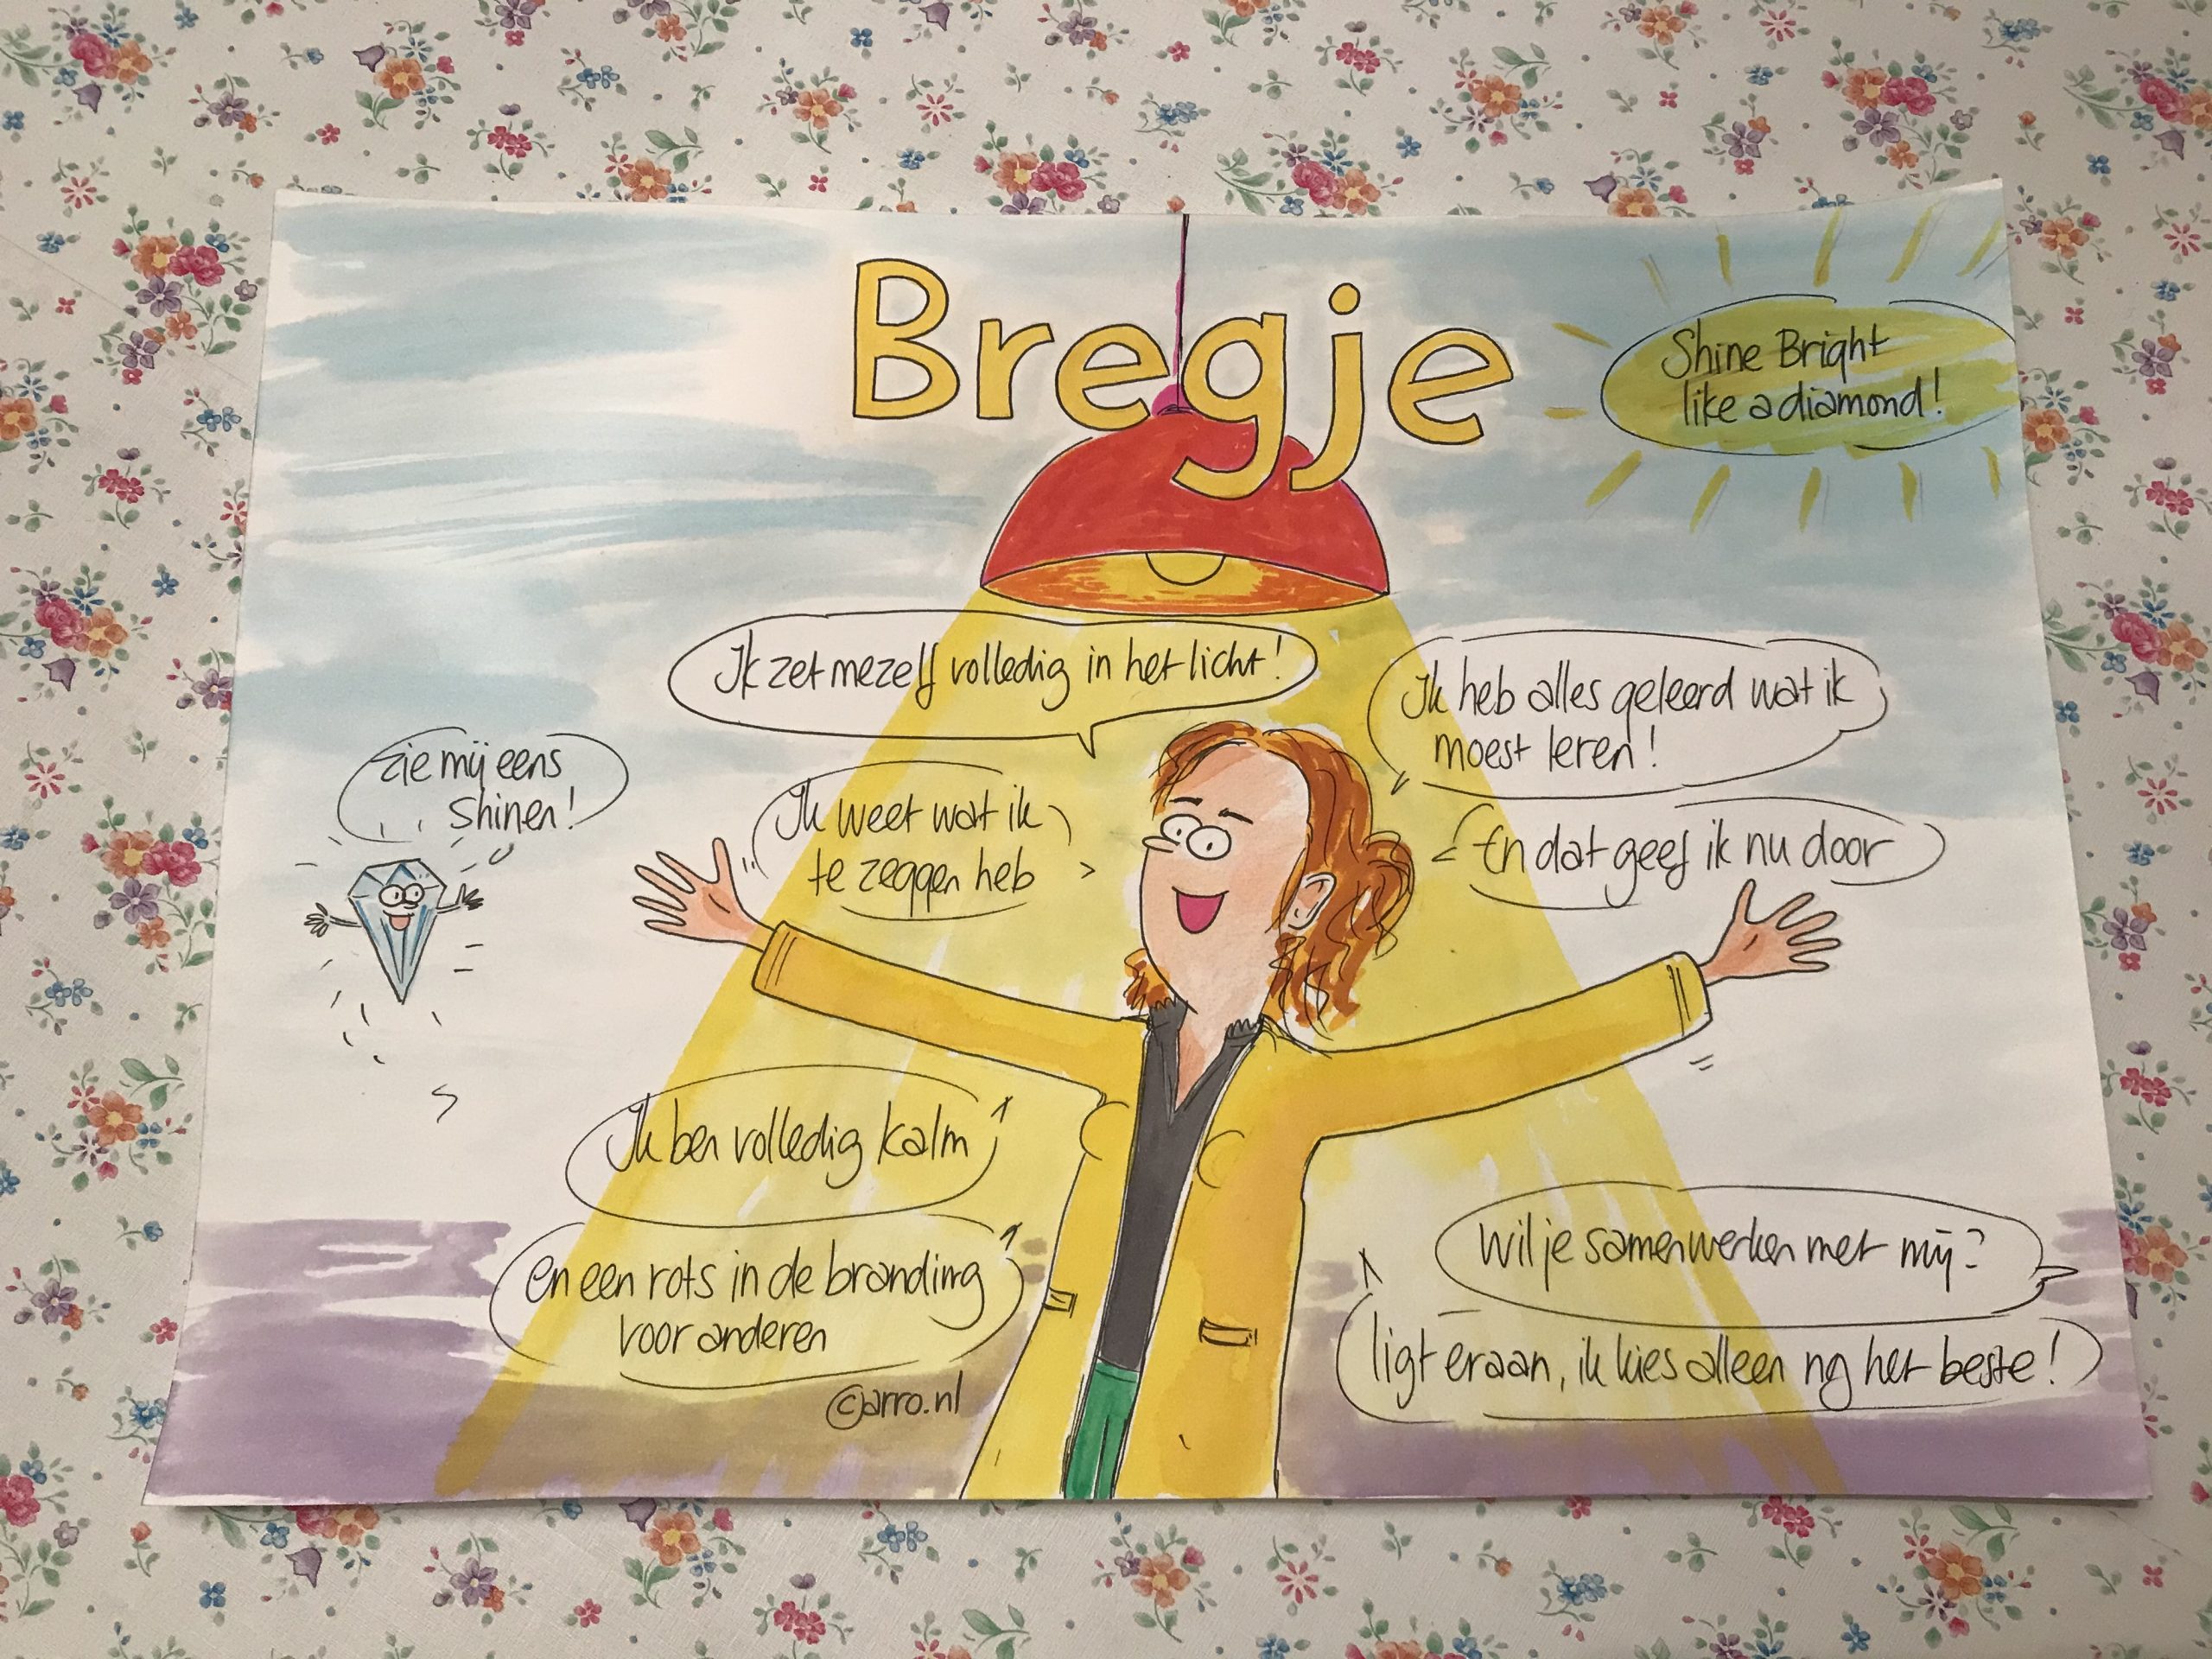 Bregje
Shine Bright
like a diamond!
Ik zet mezelf volledig in het licht!
Ik heb alles geleerd wat ik
moest leren!
zie mij eens
shinen!
Ik weet wat ik
te zeggen heb
En dat geef ik nu door
Ik ben volledig kalm
en een rots in de branding
voor anderen
Wil je samenwerken met mij?
ligt eraan, ik kies alleen ng het beste!
©arro.nl